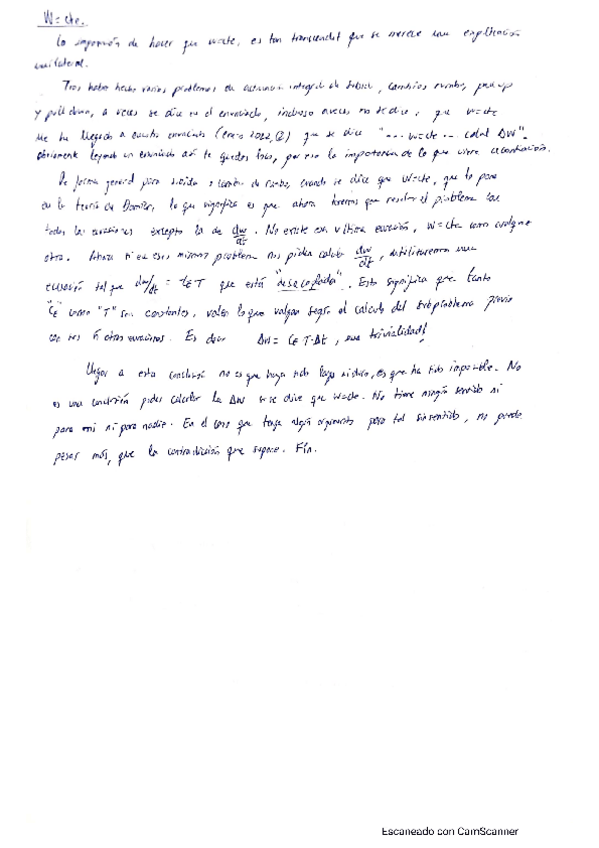 W=cte.
La suposición de hacer que W=cte, es tan trascendental que se merece una explicación
unilateral.
Tras haber hecho varios problemas de actuación integral de subida, cambios rumbo, pull-up
y pull down, a veces se dice en el enunciado, incluso a veces no se dice, que W=cte
He llegado a enunciados (enero 2022, (2)) que se dice "... W=cte ... calcul ΔW".
Obviamente leyendo un enunciado así te quedas loco, por eso la importancia de lo que viene a continuación.
De forma general para subida o cambio de rumbo, cuando se dice que W=cte, que lo pone
en la teoría de lo que significa es que ahora tenemos que resolver el problema con
todas las ecuaciones excepto la de dW/dt. No existe esa última ecuación, W=cte como cualquier
otra. Ahora si en ese mismo problema nos piden calcular dW/dt, utilizaremos una
ecuación tal que dW/dt = CE T que está "desacoplada". Esto significa que tanto
"CE" como "T" son constantes, valen lo que valgan según el cálculo del subproblema previo
con las otras ecuaciones. Es decir ΔW = CE T·Δt, una trivialidad!
Llegar a esta conclusión no es que haya sido largo, es que ha sido imposible. No
es una condición poder calcular la ΔW si se dice que W=cte. No tiene ningún sentido ni
para mi ni para nadie. En el caso que tenga algún argumento para tal sinsentido, no puede
pesar más, que la contradicción que supone. Fin.
Escaneado con CamScanner